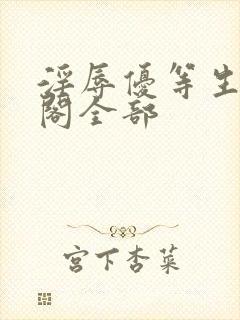 淫辱優等生
閣全部
宮下杏菜